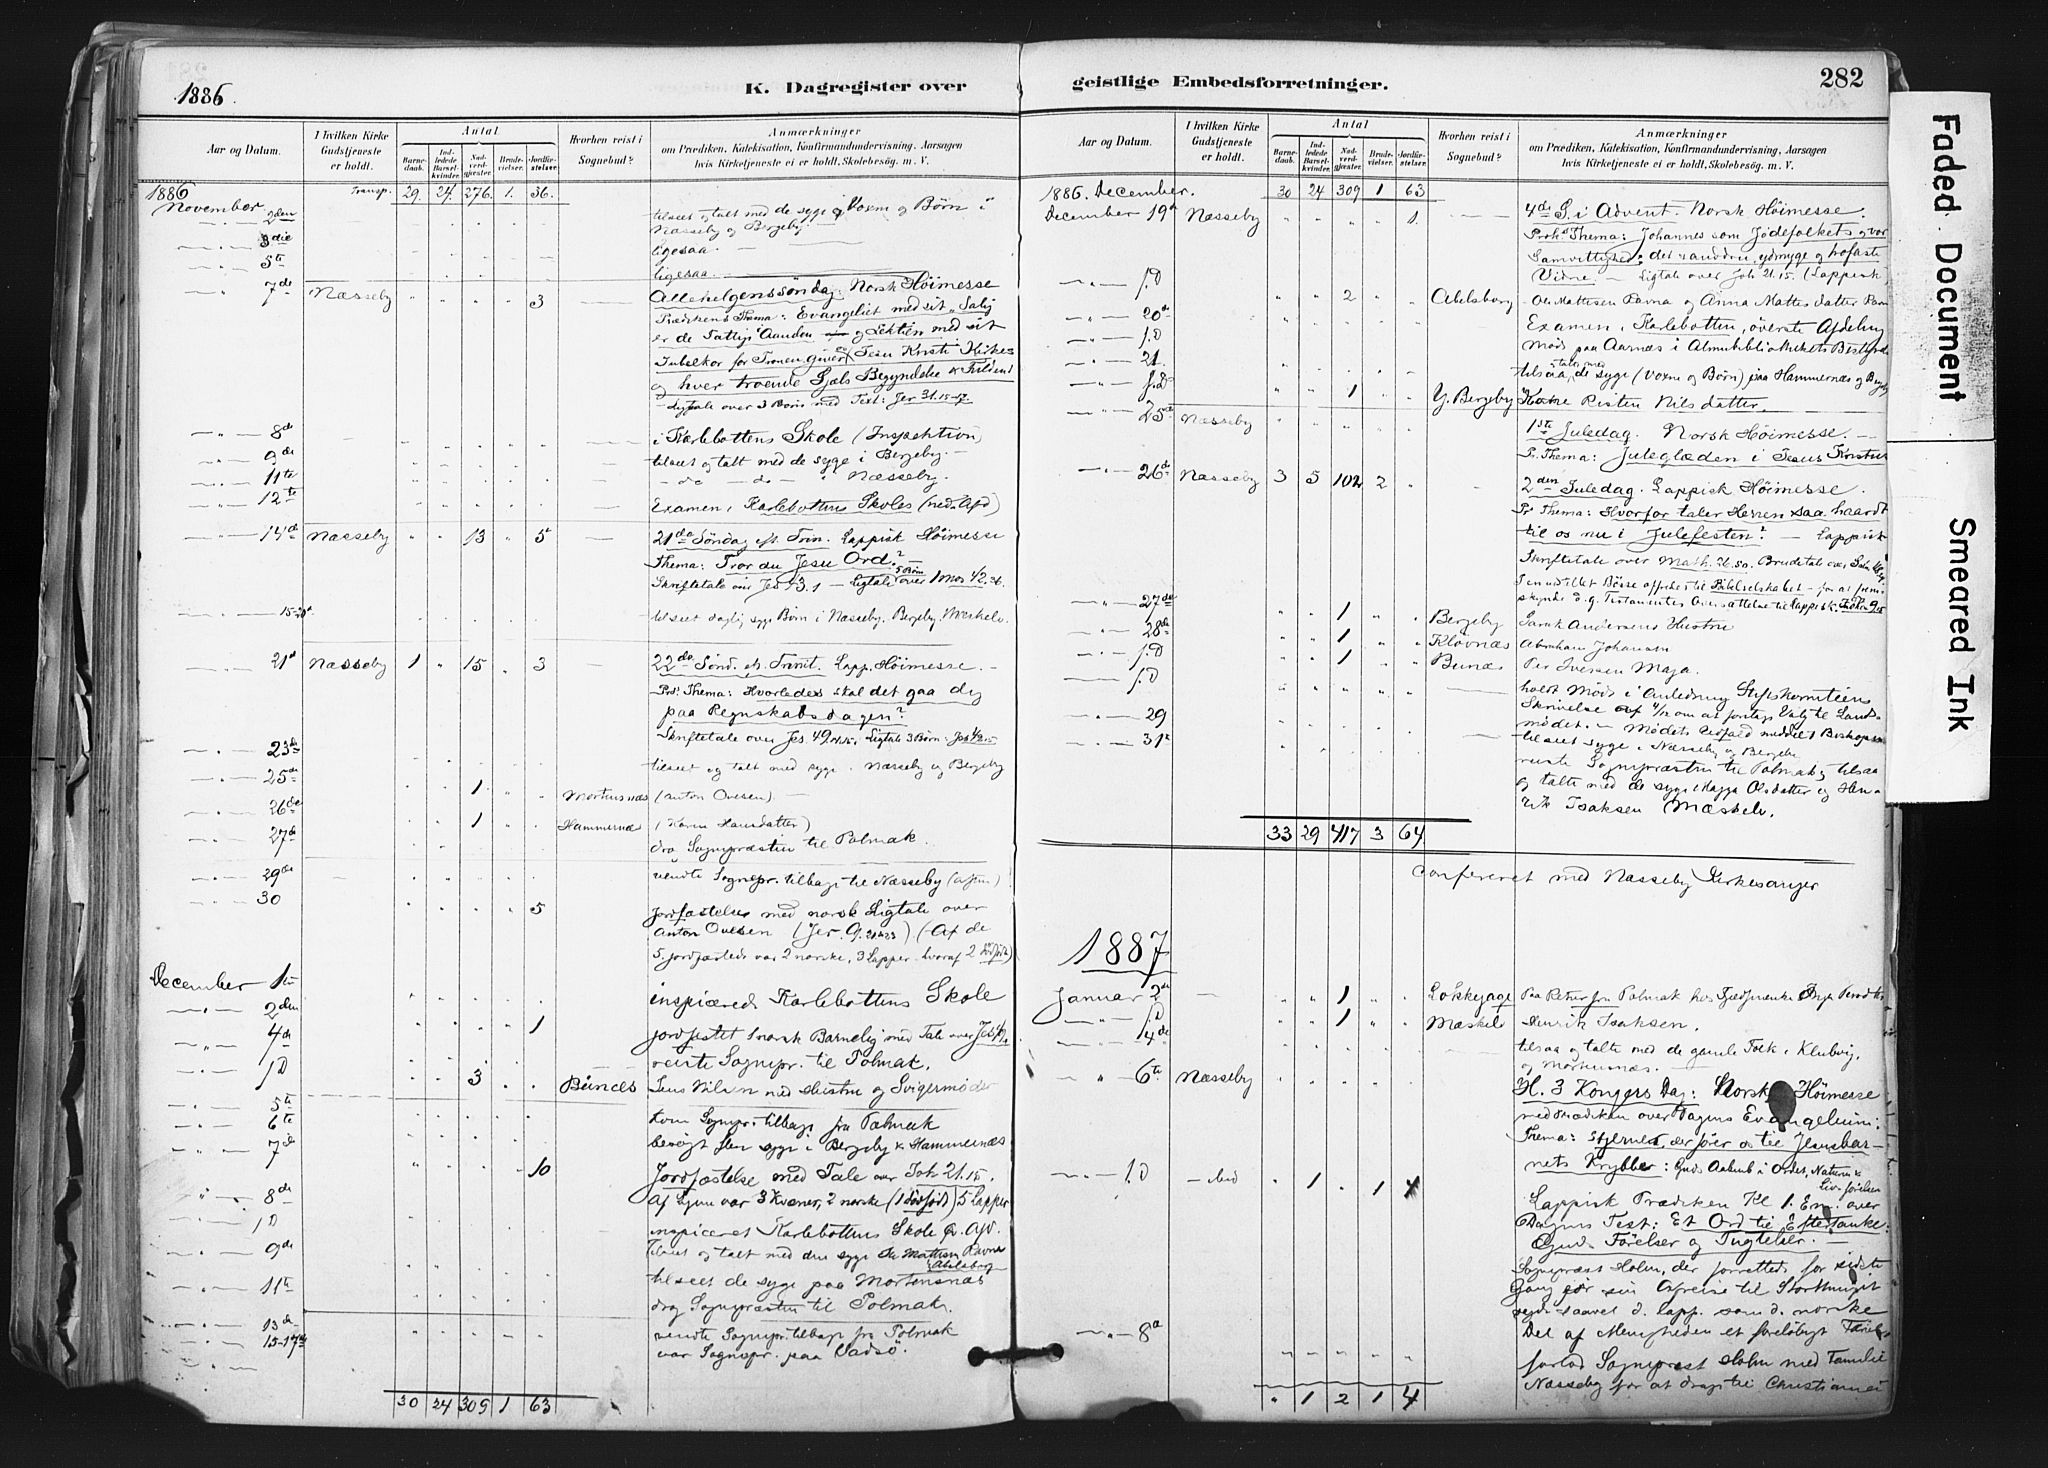 1886.
K. Dagregister over
Aar og Datum.
I hvilken Kirke Gudstjeneste er holdt.
Antal
Barnedaab.
Indledede Barselkvinder.
Nadverdgjester.
Brudevielser.
Jordfæstelser.
Hvorhen reist i Sognebud?
Anmærkninger
om Prædiken, Katekisation, Konfirmandundervisning, Aarsagen
hvis Kirketjeneste ei er holdt, Skolebesøg. m. V.
1886 Transp. 29. 24. 276. 1. 36.
November 2den tilseet og talt med de syge Voxne og Børn i
Næsseby og Bergeby.
3die ligesaa
5te ligesaa.
7de Næsseby 3 Allehelgenssøndag. Norsk Høimesse
Prædikens Thema: Evangeliet med sit "Salig
er de Fattige i Aanden og Lektien med sit
Jubelkor for Tronen giver Jesu Kristi Kirkes
og hver troende Sjæls Begyndelse &
Ligtale over 3 Børn med Text: Jer 31.15-17.
8de i Karlebottens Skole (Inspektion)
9de tilseet og talt med de syge i Bergeby.
11te do do Næsseby.
12te Examen i Karlebottens Skoles (ned. Afd)
14de Næsseby 13 5 21de Søndag eft. Trin. Lappisk Høimesse
Thema: Tror du Jesu Ord?
Skriftetale over Jes 43.1 Ligtale 5 Børn over 1 Mos 42.36.
15-20de tilseet daglig syge Børn i Næsseby, Bergeby, Mæskelv.
21de Næsseby 1 15 3 22de Sønd. ef. Trinit. Lapp. Høimesse.
Thema: Hvorledes skal det gaa dig
paa Regnskabsdagen?
Skriftetale over Jes. 49 Ligtale 3 Børn:
23de tilseet og talt med syge i Næsseby og Bergeby
25de 1 Mortensnæs (Anton Ovesen)
26de 1 Hammernæs (Karen Hansdatter)
27de drog Sognepræsten til Polmak.
29de vendte Sognepr. tilbage til Næsseby
30 5 Jordfæstelse med norsk Ligtale over
Anton Ovesen (Jer. 9. 21-23) (Af de
5 jordfæstede var 2 norske, 3 Lapper hvoraf 2
December 1ste
2den inspicered. Karlebottens Skole
4de 1 jordfæstet 1 norsk Barnelig med Tale over
1.D reiste Sognepr. til Polmak.
3 Bunæs Jens Nilsen med Hustru og Svigermoder
5te
6te kom Sognepr. tilbage fra Polmak
7de besøgt flere syge i Bergeby & Hammernæs
10 Jordfæstelse med Tale over Joh 21.15.
8de Af Ligene var 3 Kvæner, 2 norske (1 dødfød) 5 Lapper
1.D inspiceret Karlebottens Skole Afd.
9de Tilseet og talt med den syge Ole Mathisen Ravna
Abelsborg
11te tilseet de syge paa Mortensnæs
drog Sognepræsten til Polmak.
13de vendte Sognepr. tilbage fra Polmak
15-17de var Sognepr. paa Vadsö.
30 24 309 1 63
geistlige Embedsforretninger.
282
Aar og Datum.
I hvilken Kirke Gudstjeneste er holdt.
Antal
Barnedaab.
Indledede Barselkvinder.
Nadverdgjester.
Brudevielser.
Jordfæstelser.
Hvorhen reist i Sognebud?
Anmærkninger
om Prædiken, Katekisation, Konfirmandundervisning, Aarsagen
hvis Kirketjeneste ei er holdt, Skolebesøg. m. V.
1886. December. 30 24 309 1 63
December 19de Næsseby 1. 4de S. i Advent. Norsk Høimesse.
Thema: Johannes som Jødefolkets og vor
Samvittigheds: det sanddru, ydmyge og trofaste
Vidne - Ligtale over Joh 21.15 (Lappisk)
1.D 2 Abelsborg Ole Mattisen Ravna og Anna Mattes datter
20de Examen i Karlebotten, överste Afdeling
1.D Møde paa Aarnæs i Almubibliothekets
21. tilsaa, talte med de syge (Voxne og Børn) paa Hammernæs og Bergeby
1.D 1 Y. Bergeby Risten Nilsdatter.
25de Næsseby 1ste Juledag. Norsk Høimesse.
Pr. Thema: Juleglæden i Jesus Kristus
26de Næsseby 3 5 102 2 2den Juledag. Lappisk Høimesse.
Pr Thema: Hvorfor taler Herren saa haardt
til os nu i Julefesten? - Lappisk
Skriftetale over Math. Brudetale over
I en udstillet Bösse offredes til Bibelselskabet for at frem-
skynde d. g. Testamentes Oversættelse til Lappisk.
27de 1 Bergeby Sarak Andersens Hustru
28de 1 Kløvnæs Abraham Johansen
1.D 1 Bunæs Per Iversen Maja.
1.D holdt Møde i Anledning Stiftskomiteens
Skrivelse af 4/12 om at foretage Valg til Lands-
29 mødet. - Mødets Udfald meddelt Biskopen
31te tilseet syge i Næsseby og Bergeby
reiste Sognepræsten til Polmak, tilsaa
og talte med de syge Olsdatter og Hen-
rik Isaksen Mæskelv.
33 29 417 3 64
confereret med Næsseby Kirkesanger
1887
Januar 2den 1 paa Retur fra Polmak hos
1.D 1 Mæskelv Henrik Isaksen.
4de tilsaa og talte med de gamle Folk i Klubvig,
og Mortensnæs.
6te Næsseby H. 3 Kongers Dag: Norsk Høimesse
med Prædiken over Dagens Evangelium:
Thema: Stjernen, der förer os til Jesusbar-
nets Krybbe: Guds Aabenb. i Ordet, Naturen &
1.D ibid 1 1 4 Livsförelsen
Lappisk Prædiken Kl 1. Em. over
Dagens Text: Et Ord til Eftertanke:
Guds Förelser og Tugtelser.
Sognepræst Holm, der forrettede for sidste
Gang før sin Afreise til Storthinget
saavel d. lapp. som d. norske
Del af Menigheden et foreløbigt
8de forlod Sognepræst Holm med Familie
Næsseby for at drage til Christiania
1 2 1 4
Faded Document
Smeared Ink